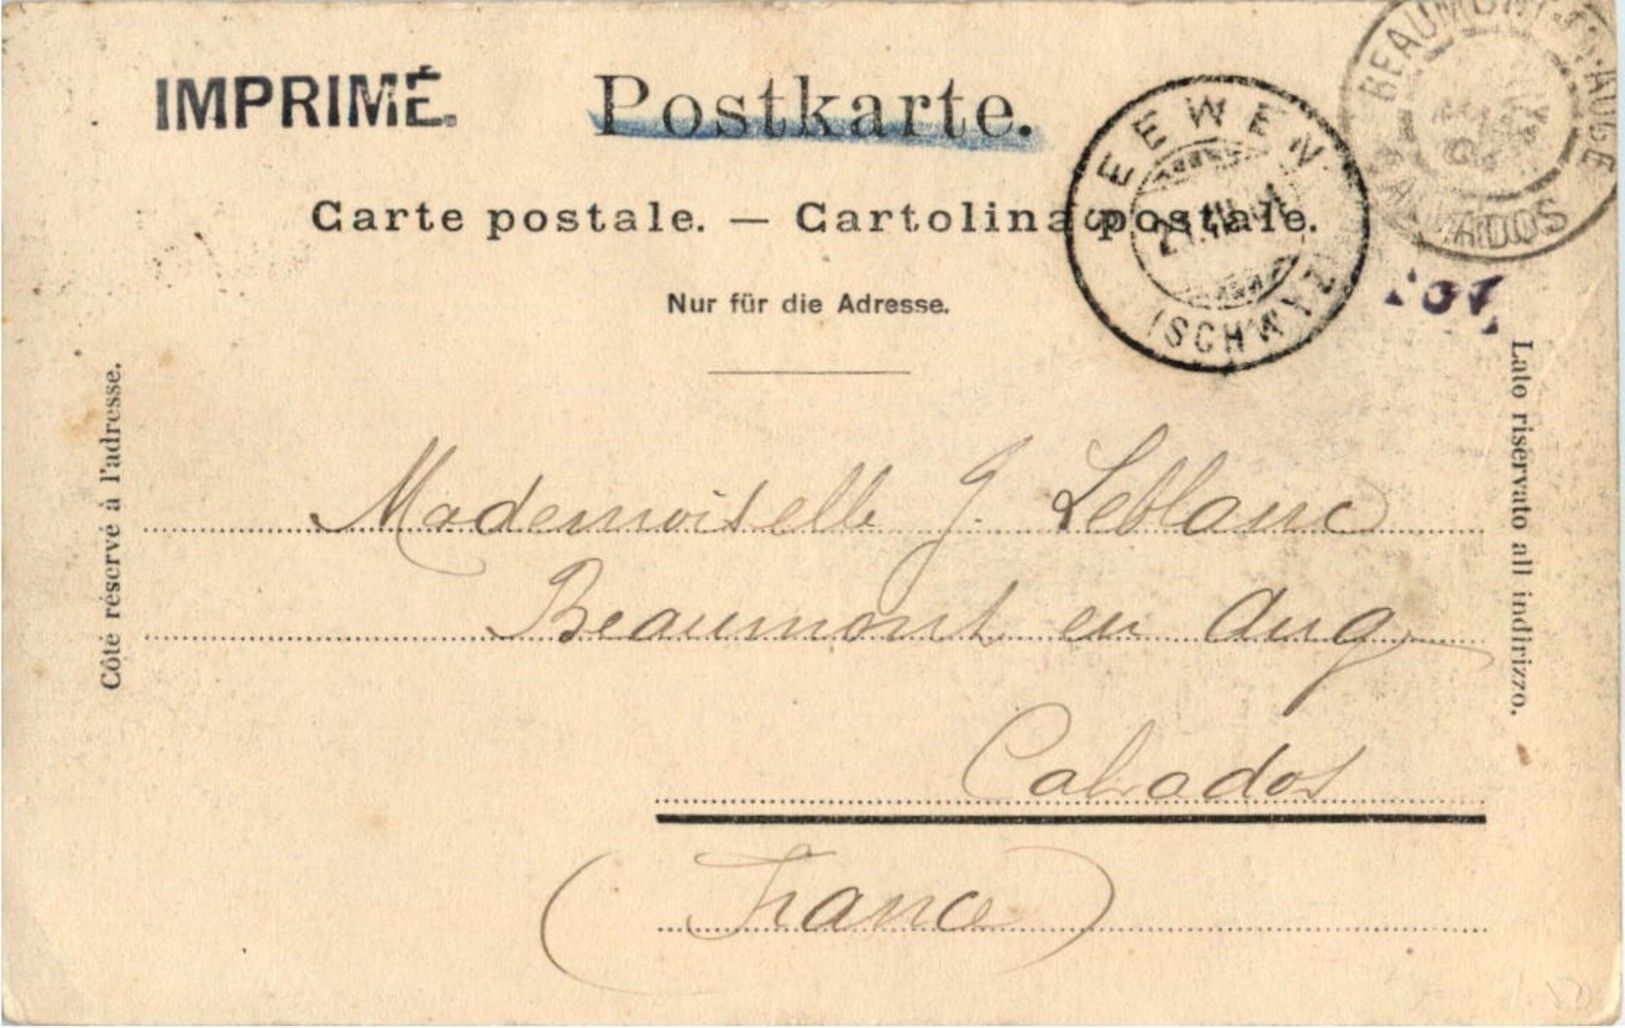 IMPRIMÉ.
Postkarte.
Carte postale. — Cartolina postale.
Nur für die Adresse.
SEEWEN
(SCHWYZ)
BEAUMONT-EN-AUGE
CALVADOS
Côté réservé à l'adresse.
Lato riservato all indirizzo.
Mademoiselle J. Leblanc
Beaumont en Aug
Calvados
(France)